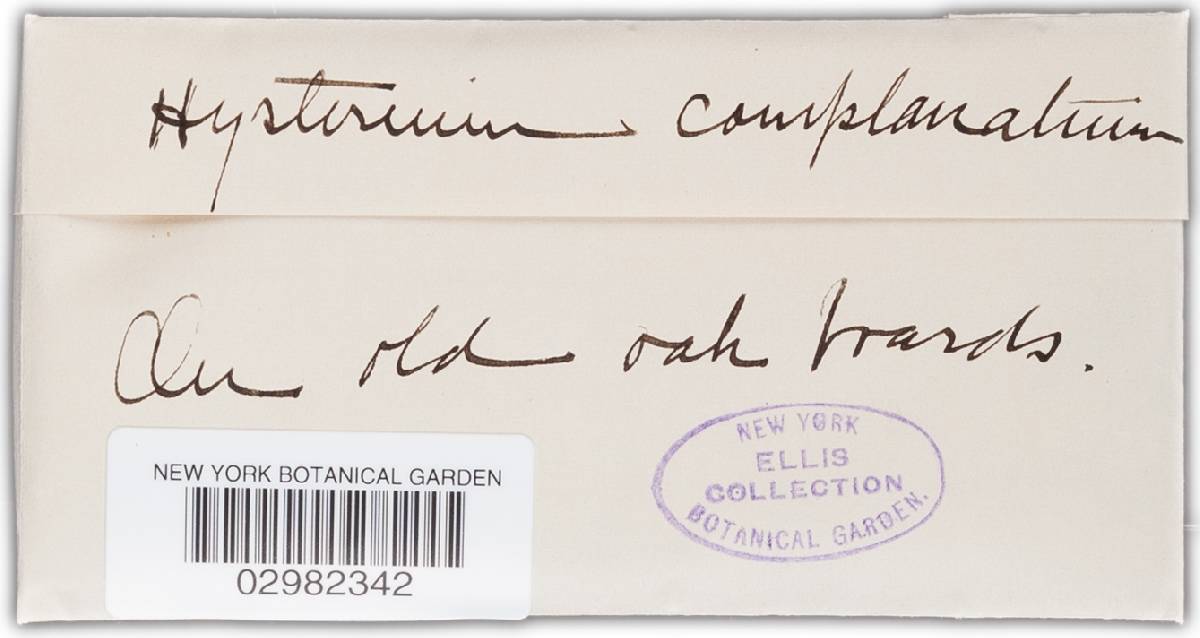 Hysterium complanatum
On old oak boards.
NEW YORK
ELLIS
COLLECTION
BOTANICAL GARDEN.
NEW YORK BOTANICAL GARDEN
02982342